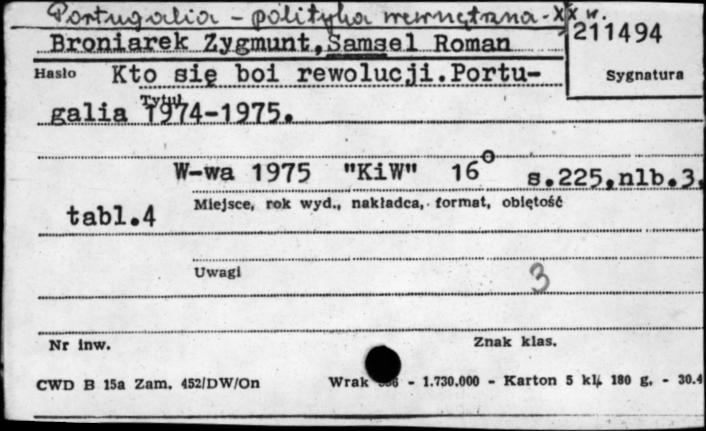 Portugalia - polityka wewnętrzna - XX w.
Broniarek Zygmunt, Samsel Roman
211494
Hasło Kto się boi rewolucji.Portu-
Sygnatura
Tytuł
galia 1974-1975.
W-wa 1975 "KiW" 16° s.225,nlb.3,
Miejsce, rok wyd., nakładca, format, objętość
tabl.4
Uwagi
3
Nr inw.
Znak klas.
CWD B 15a Zam. 452/DW/On Wrak - 1.730.000 - Karton 5 kl. 180 g. - 30.4